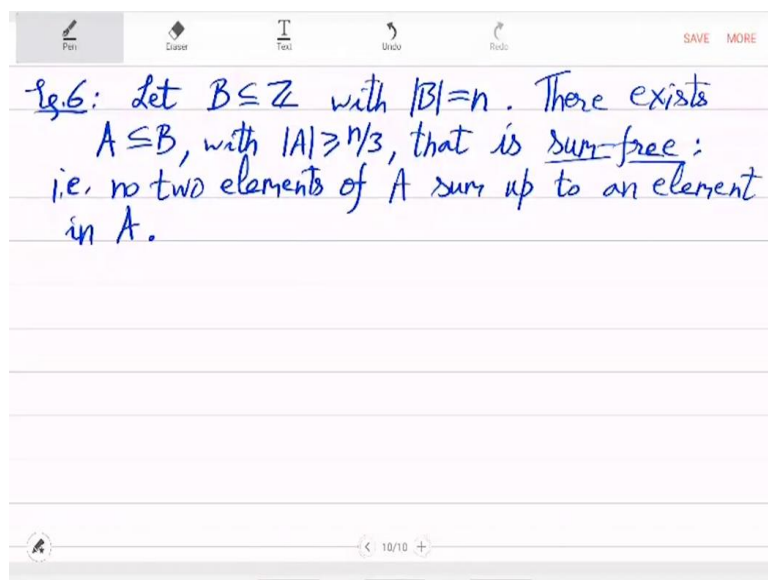 Pen Eraser Text Undo Redo SAVE MORE
Eg.6: Let B ⊆ ℤ with |B|=n. There exists
A ⊆ B, with |A| ⩾ n/3, that is sum-free:
i.e. no two elements of A sum up to an element
in A.
< 10/10 +